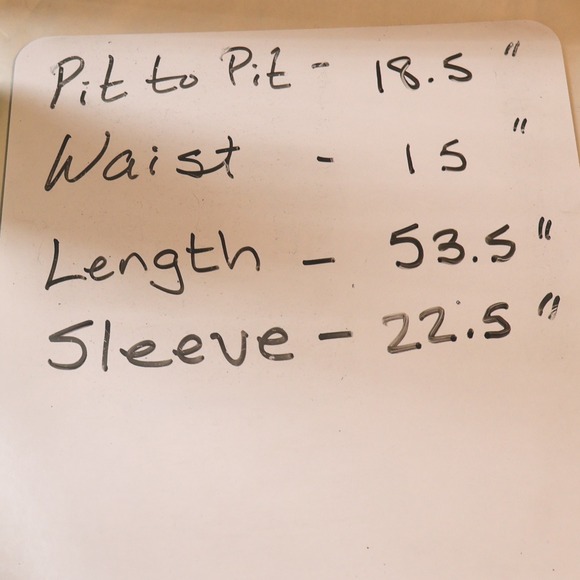 Pit to Pit - 18.5 "
Waist - 15 "
Length - 53.5 "
Sleeve - 22.5 "